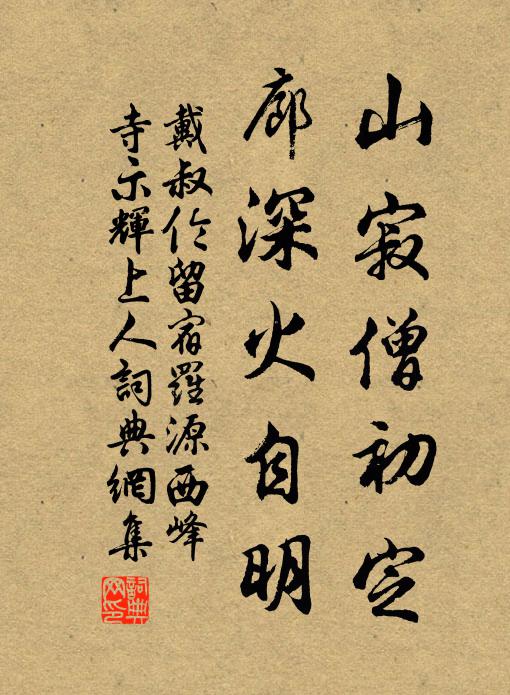 山寂僧初定
廊深火自明
戴叔伦留宿羅源西峰
寺示輝上人詞典網集
詞典网印